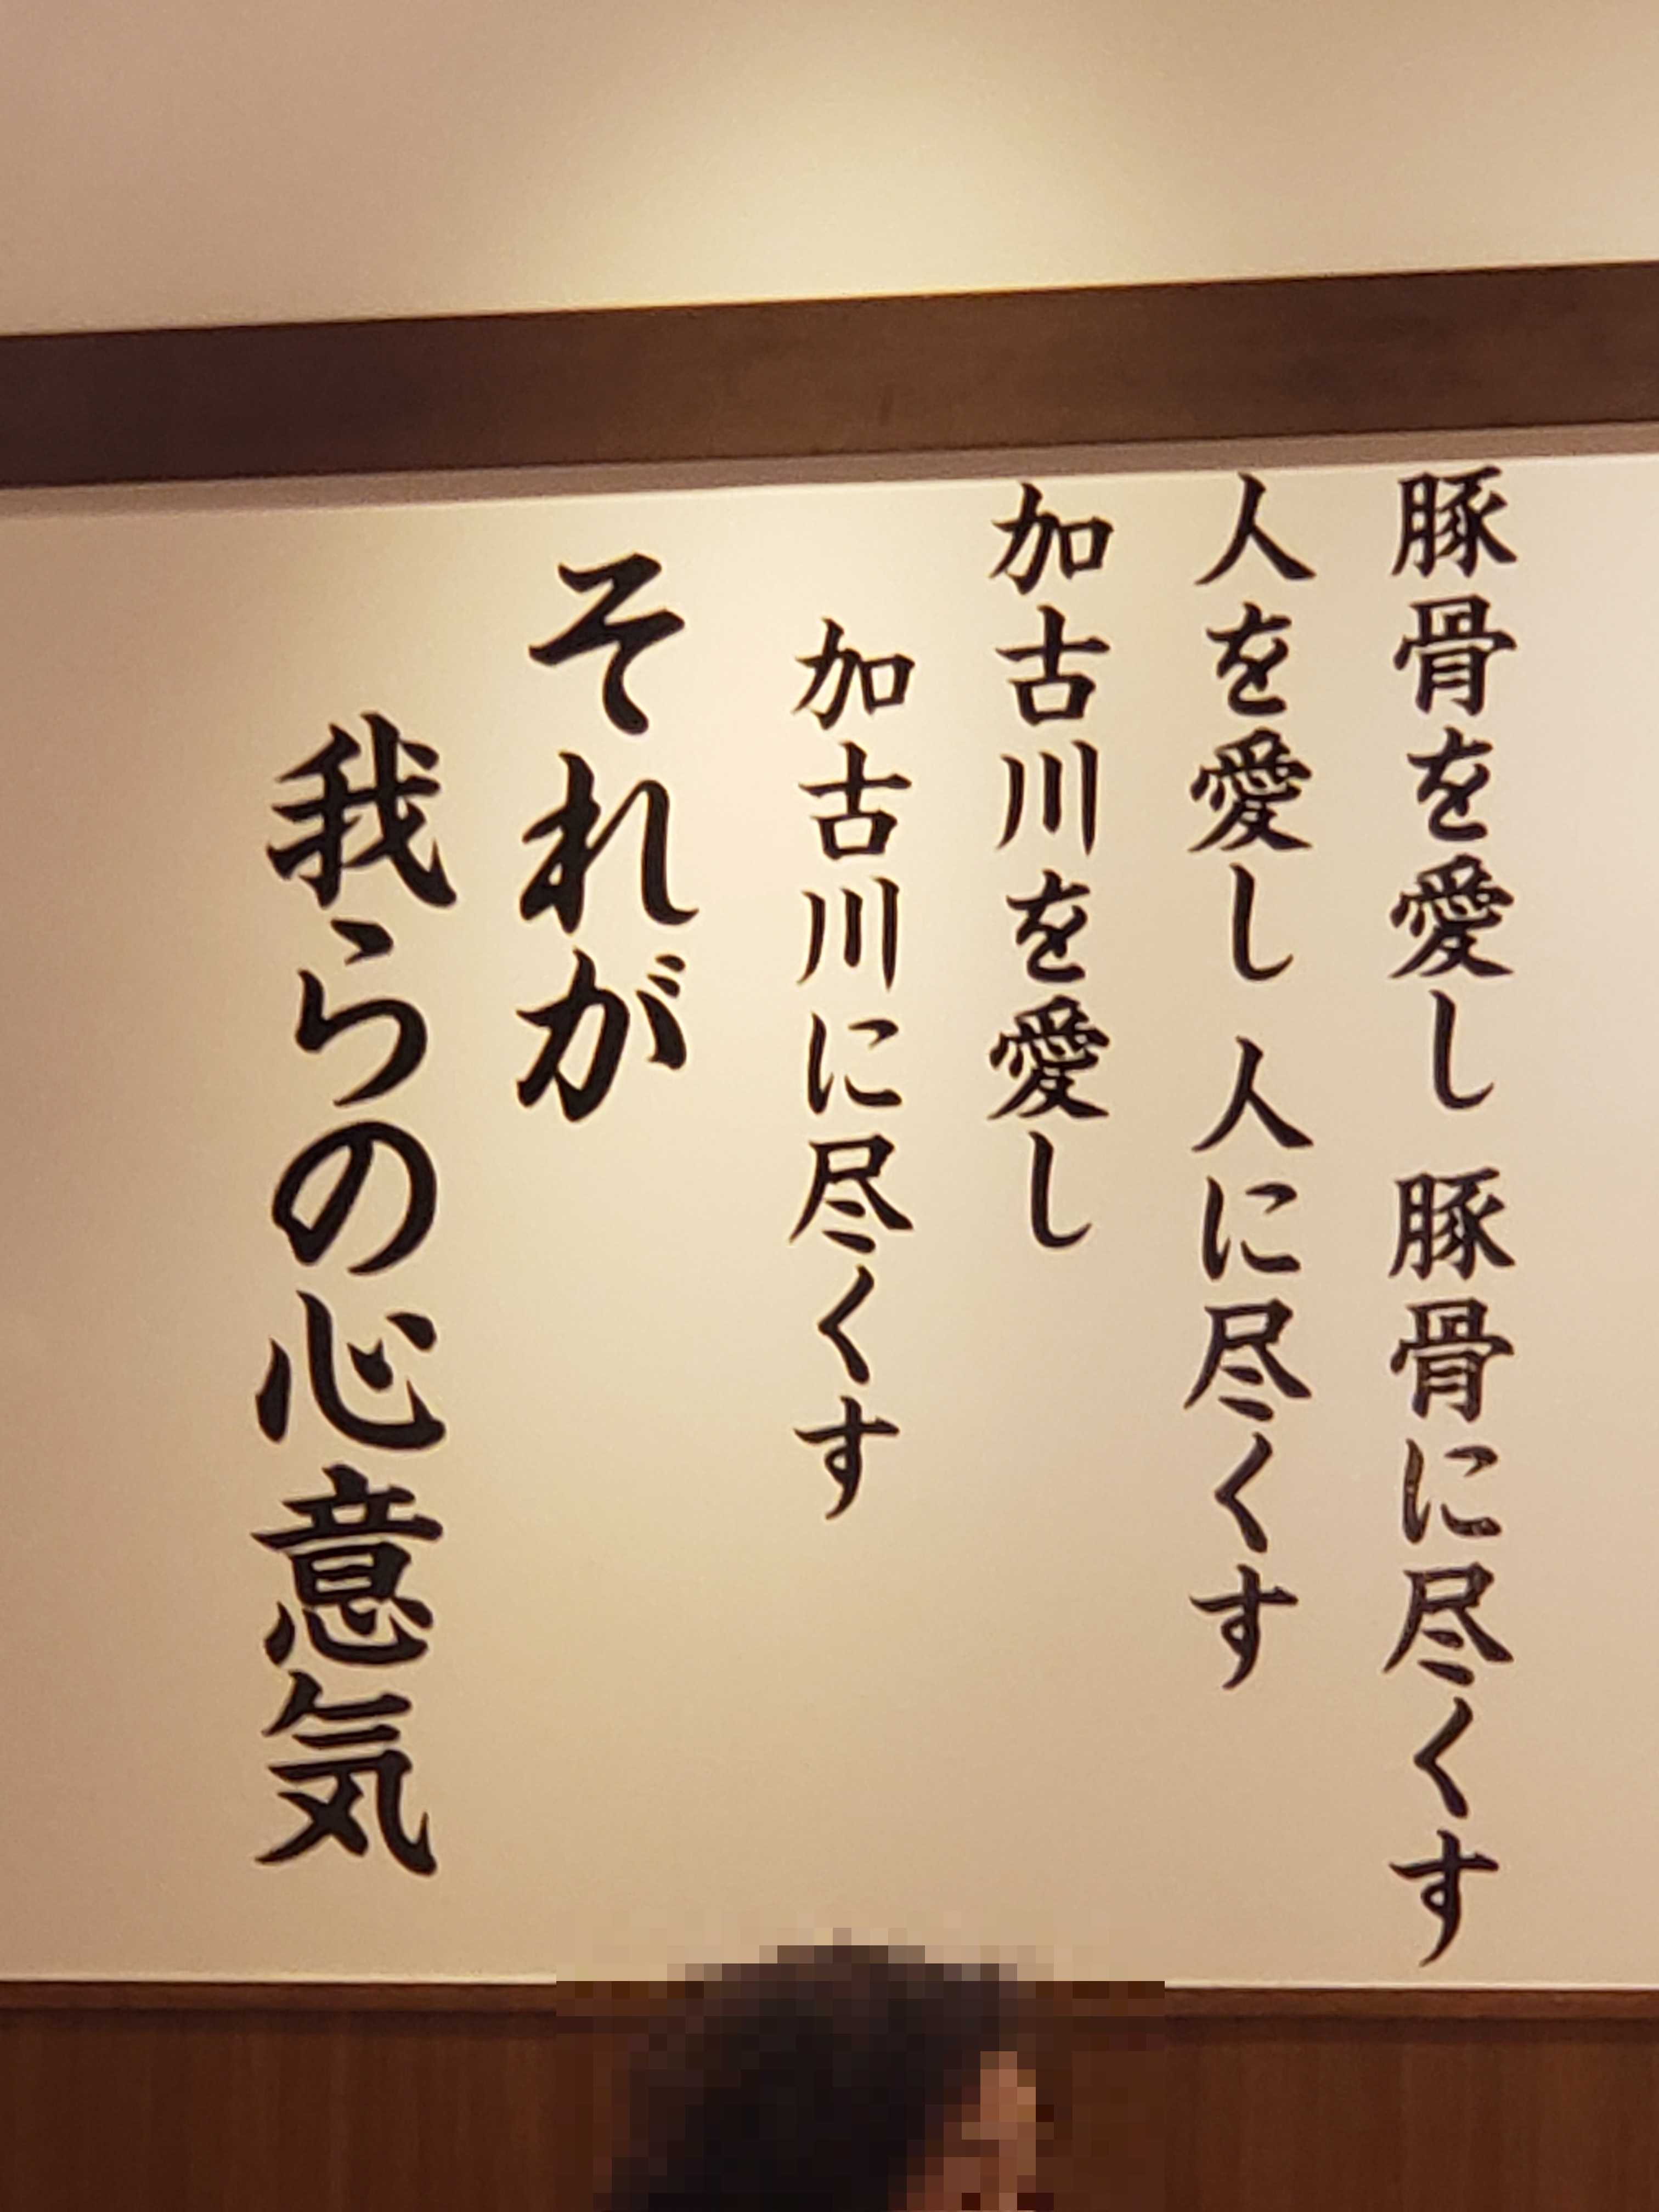 豚骨を愛し 豚骨に尽くす
人を愛し 人に尽くす
加古川を愛し
加古川に尽くす
それが
我らの心意気